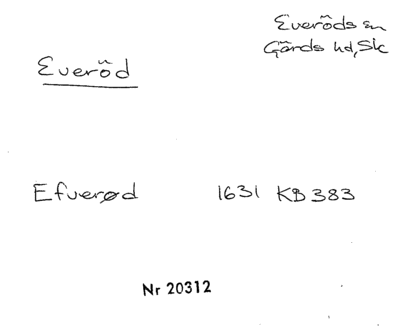 Everöds sn
Gärds hd, Sk
Everöd
Efverød 1631 KB 383
Nr 20312